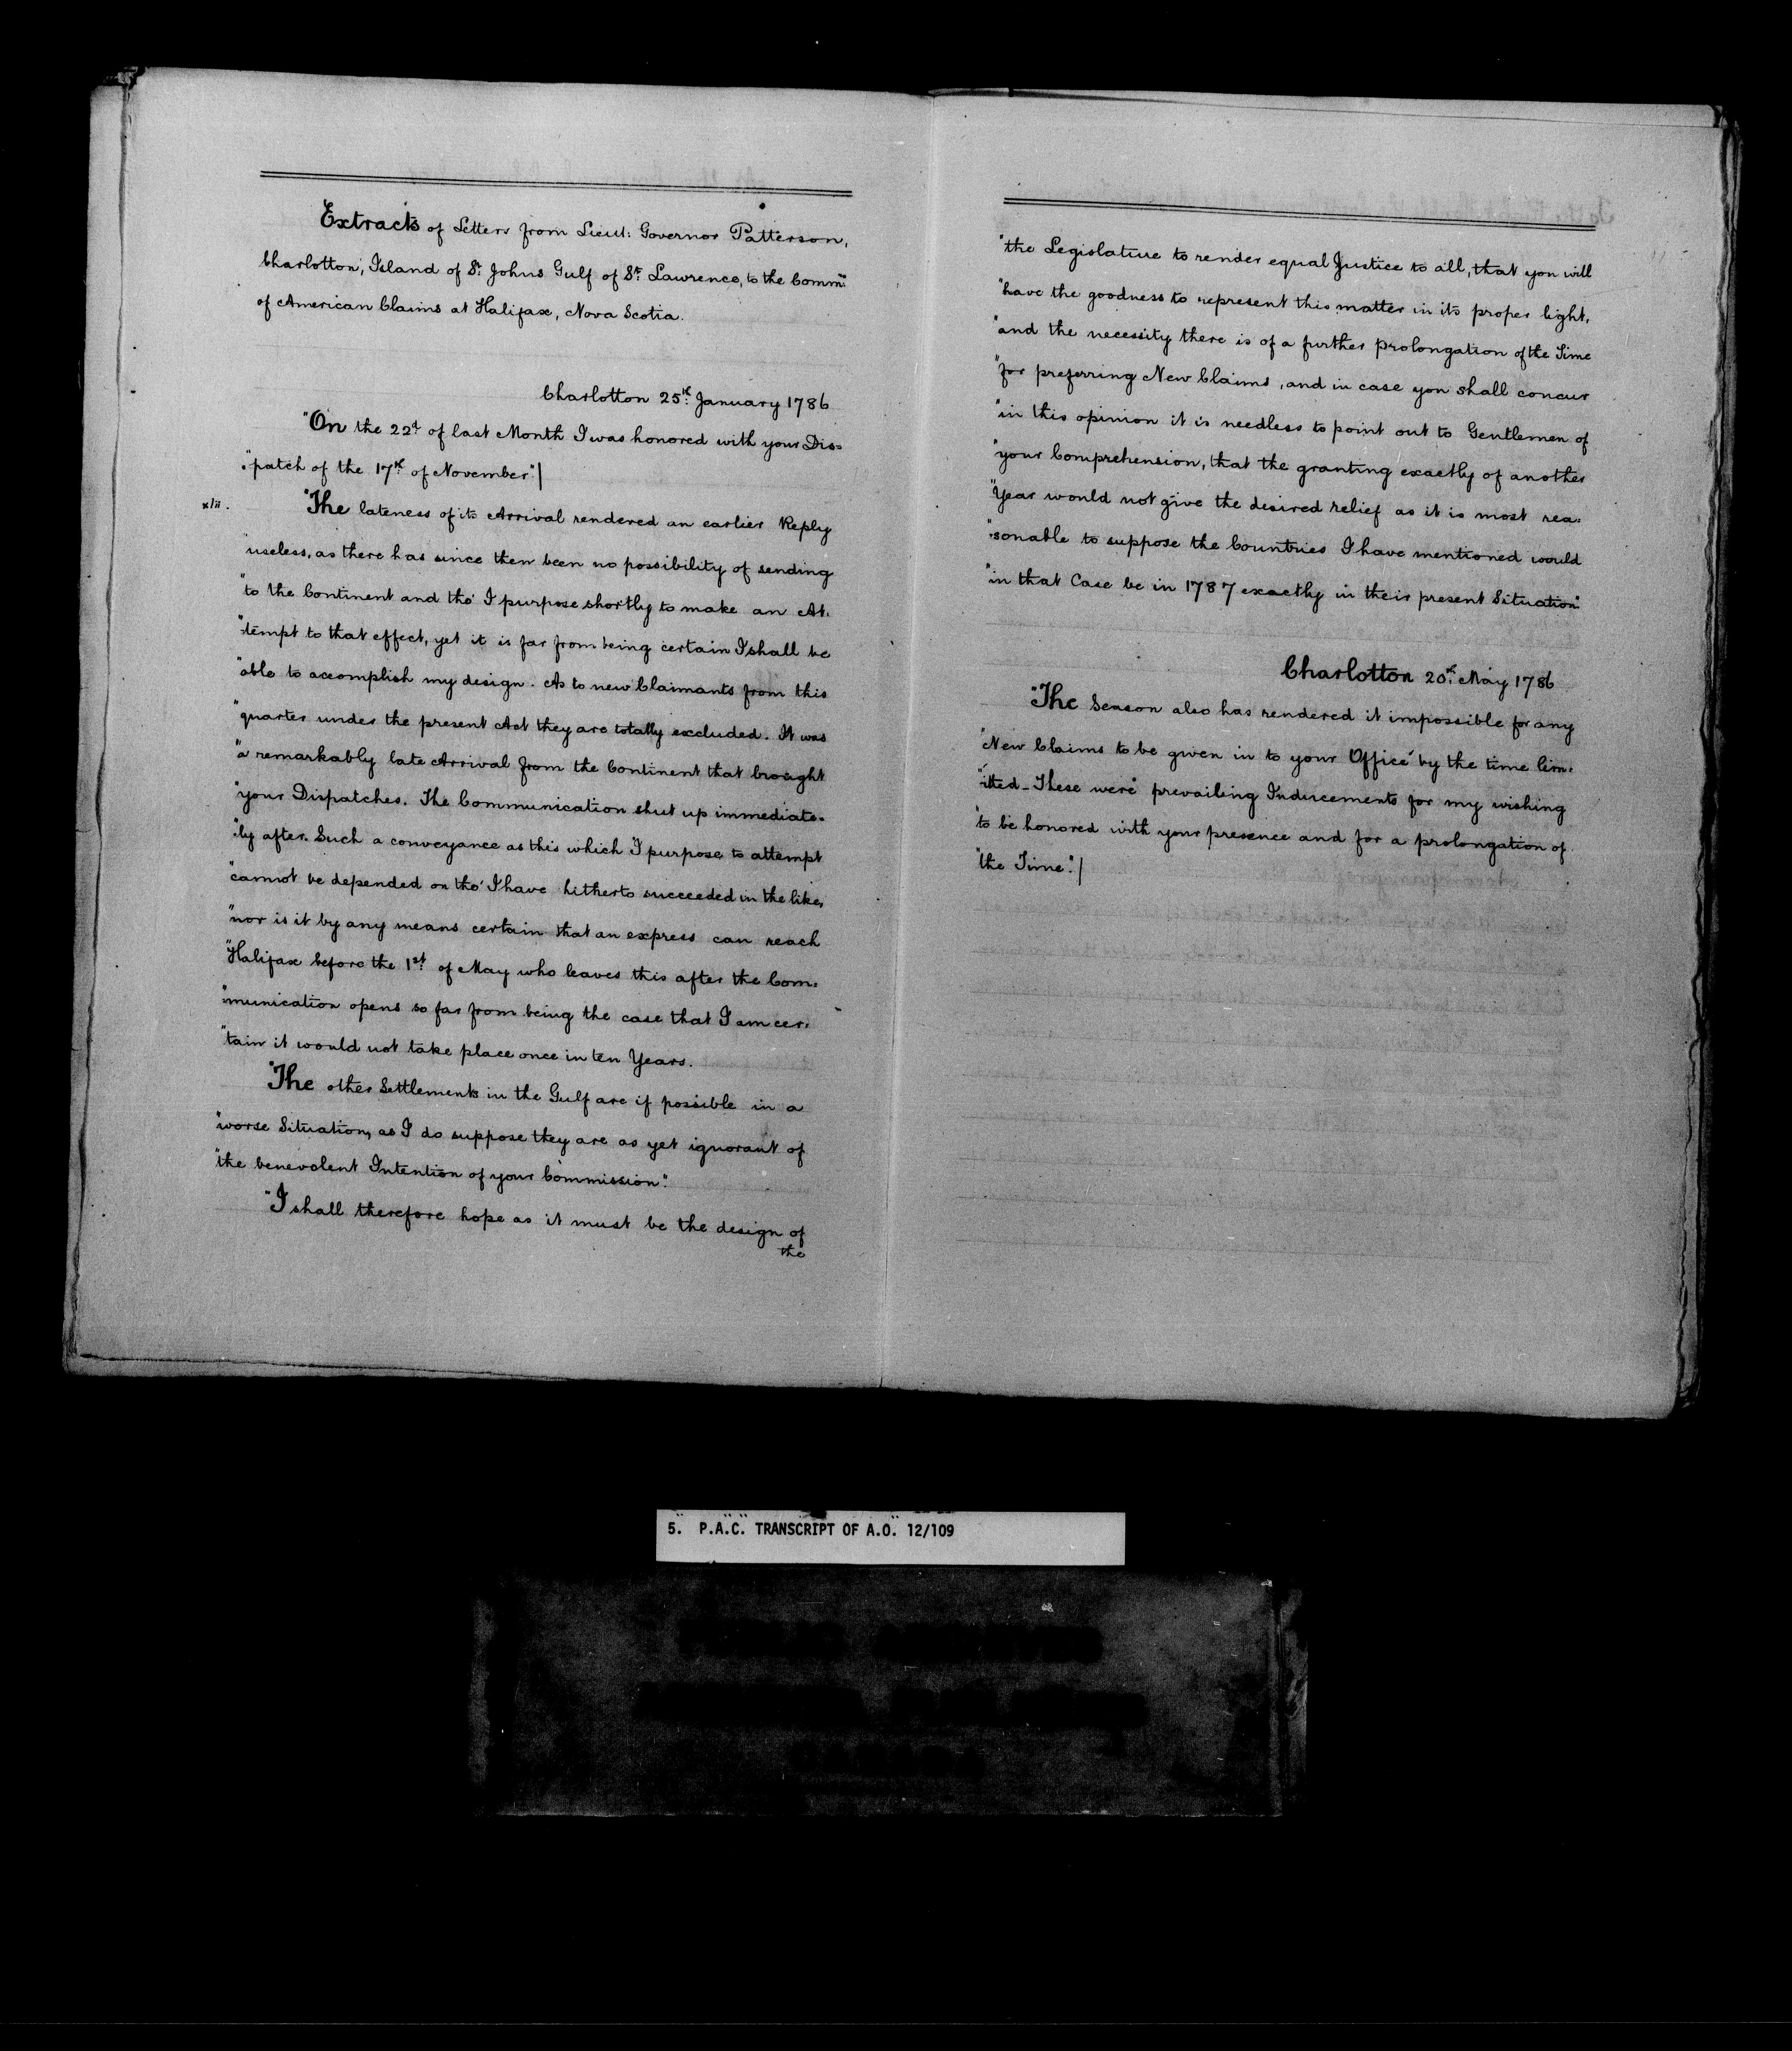 Extracts of Letters from Lieut: Governor Patterson,
Charlotton, Island of St. Johns Gulf of St. Lawrence, to the Commrs.
of American Claims at Halifax, Nova Scotia.
Charlotton 25th. January 1786
"On the 22d of last Month I was honored with your Dis=
"patch of the 17th. of November"/
xlii.
"The lateness of its Arrival rendered an earlier Reply
"useless, as there has since then been no possibility of sending
"to the Continent and tho' I purpose shortly to make an At:
"tempt to that effect, yet it is far from being certain I shall be
"able to accomplish my design. As to new Claimants from this
"quarter under the present Act they are totally excluded. It was
"a remarkably late Arrival from the Continent that brought
"your Dispatches. The Communication shut up immediate=
"ly after. Such a conveyance as this which I purpose to attempt
"cannot be depended on tho' I have hitherto succeeded in the like,
"nor is it by any means certain that an express can reach
"Halifax before the 1st. of May who leaves this after the Com:
"munication opens so far from being the case that I am cer:
"tain it would not take place once in ten Years.
"The other Settlements in the Gulf are if possible in a
"worse Situation, as I do suppose they are as yet ignorant of
"the benevolent Intention of your Commission."
"I shall therefore hope as it must be the design of
the
"the Legislature to render equal Justice to all, that you will
"have the goodness to represent this matter in its proper light,
"and the necessity there is of a further prolongation of the Time
"for preferring New Claims, and in case you shall concur
"in this opinion it is needless to point out to Gentlemen of
"your Comprehension, that the granting exactly of another
"Year would not give the desired relief as it is most rea:
"sonable to suppose the Countries I have mentioned would
"in that Case be in 1787 exactly in their present Situation"
Charlotton 20th. May 1786
"The Season also has rendered it impossible for any
"New Claims to be given in to your Office by the time lim:
"itted_These were prevailing Inducements for my wishing
"to be honored with your presence and for a prolongation of
"the Time."/
5. P.A.C. TRANSCRIPT OF A.O. 12/109